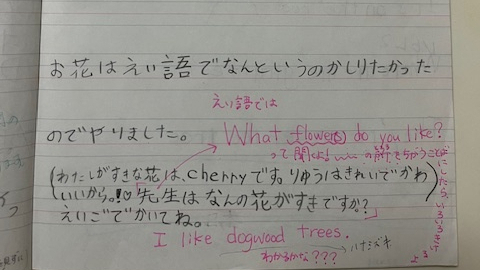 お花はえい語でなんというのかしりたかった
えい語では
のでやりました。
What flowers do you like?
って聞くよ!
(わたしがすきな花は、cherryです。りゆうはきれいでかわ
いいから。!♡「先生はなんの花がすきですか?」)
えいごでかいてね。
I like dogwood trees.
わかるかな???
ハナミズキ